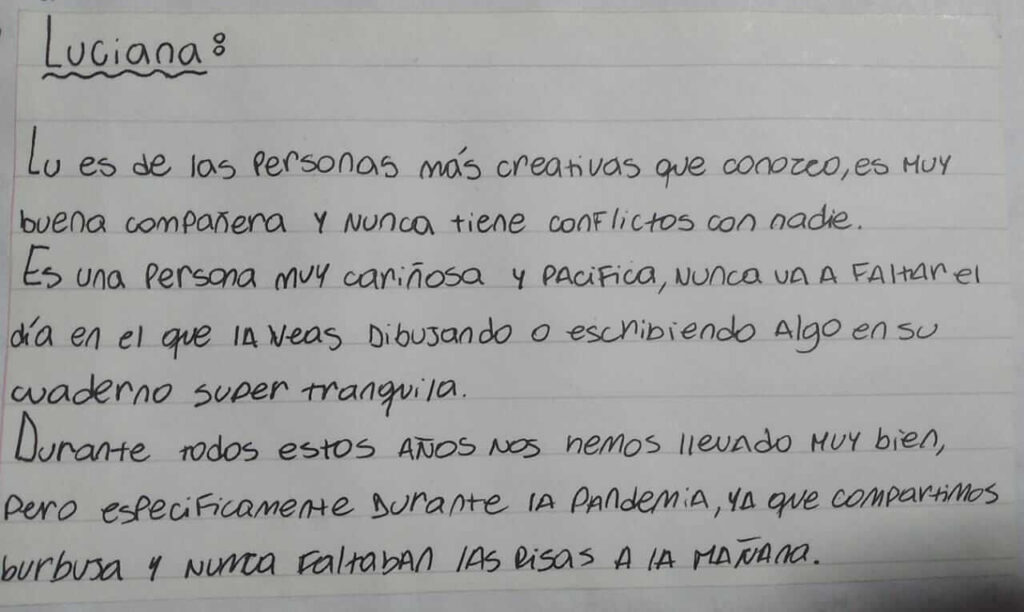 Luciana:
Lu es de las personas más creativas que conozco, es MUY
buena compañera y NUNCA tiene conflictos con nadie.
Es una persona muy cariñosa y PACIFICA, NUNCA VA A FALTAR el
día en el que LA veas Dibujando o escribiendo Algo en su
cuaderno super tranquila.
Durante todos estos AÑOS NOS hemos llevado MUY bien,
pero especificamente Durante LA PANdEMIA, YA que compartimos
burbuja y NUNCA FALTABAN LAS RISAS A LA MAÑANA.